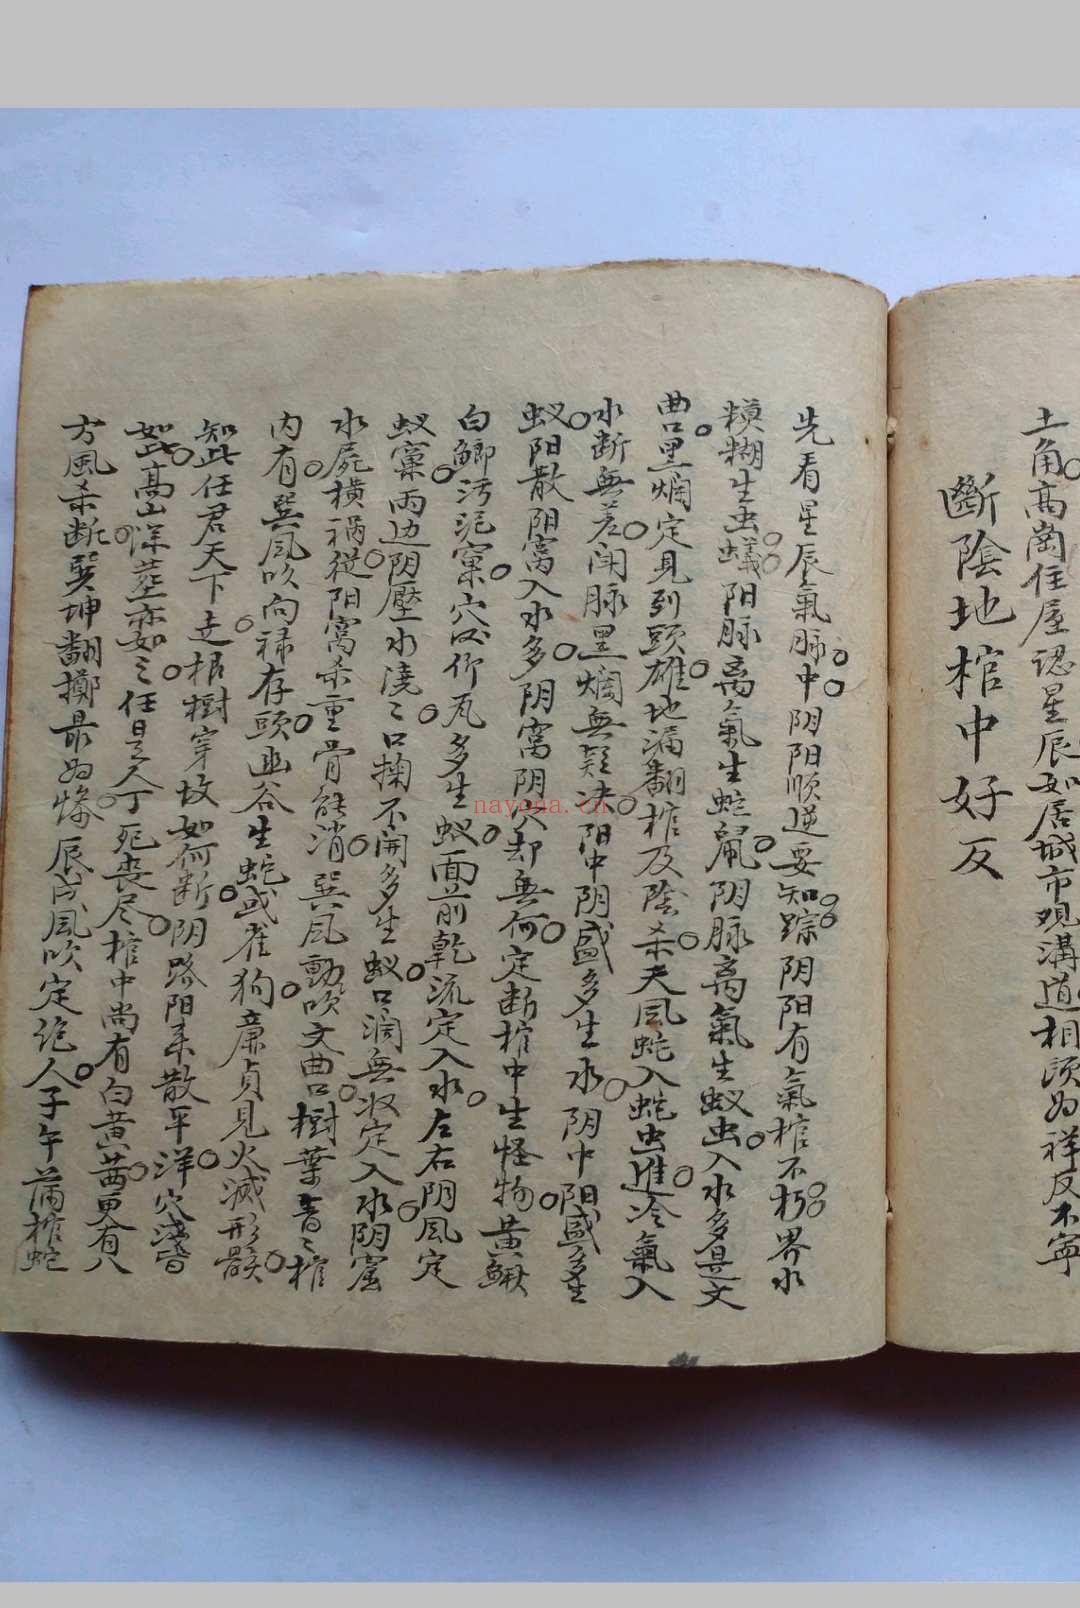 土角高崗住屋認星辰如居城市观溝道相須为祥反不寧
斷陰地棺中好反
先看星辰氣脉中阴阳順逆要知踪阴阳有氣棺不朽界水
糢糊生虫蟻阳脉离氣生蛇鼠阴脉离氣生蚁虫入水多是文
曲口黑爛定見到頭雄地漏翻棺及陰杀天风蛇入蛇虫進冷氣入
水断無差闭脉黑爛無疑决阳中阴盛多生水阴中阳盛多生
蚁阳散阴窩入水多阴窩阴穴却無何定断棺中生怪物黄鳅
白鲫污泥窠穴似仰瓦多生蚁面前乾流定入水左右阴风定
蚁窠兩边阴壓水澆〻口掬不開多生蚁口濶無收定入水阴窟
水屍横禍從阳窩杀重骨能消巽风動吹文曲口樹葉青〻棺
内有巽风吹向禄存頭幽谷生蛇或雀狗廉貞見火滅形骸
知此任君天下走棺樹穿坟如何断阴路阳来散平洋穴淺皆
如此高山深葬亦如〻任是人丁死丧尽棺中尚有白黄茜更有八
方風杀断巽坤翻擲最为惨辰戌風吹定絶人子午蒲棺蛇
nayona.cn